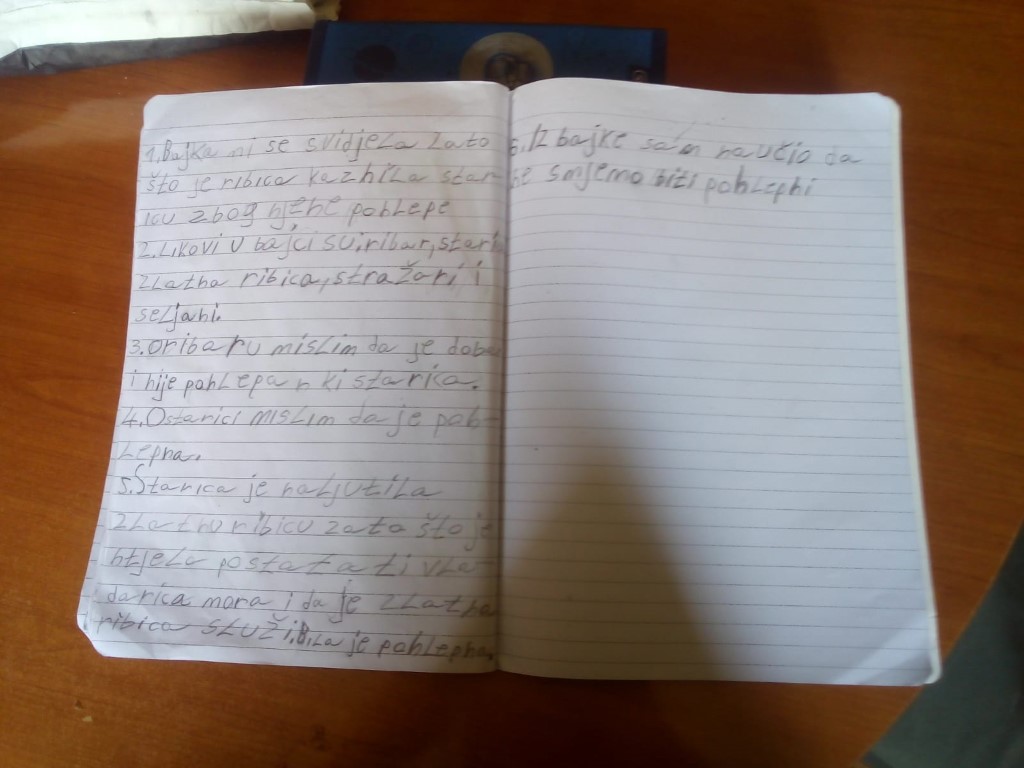 1. Bajka mi se svidjela zato
što je ribica kaznila star-
icu zbog njene pohlepe
2. Likovi u bajci su: ribar, stari
zlatna ribica, stražari i
seljani.
3. O ribaru mislim da je doba
i nije pohlepan ki starica.
4. O starici mislim da je poh-
lepna.
5. Starica je naljutila
zlatnu ribicu zato što je
htjela postatati vla-
darica mora i da je zlatna
ribica služi. Bila je pohlepna.
6. Iz bajke sam naučio da
ne smjemo biti pohlephi